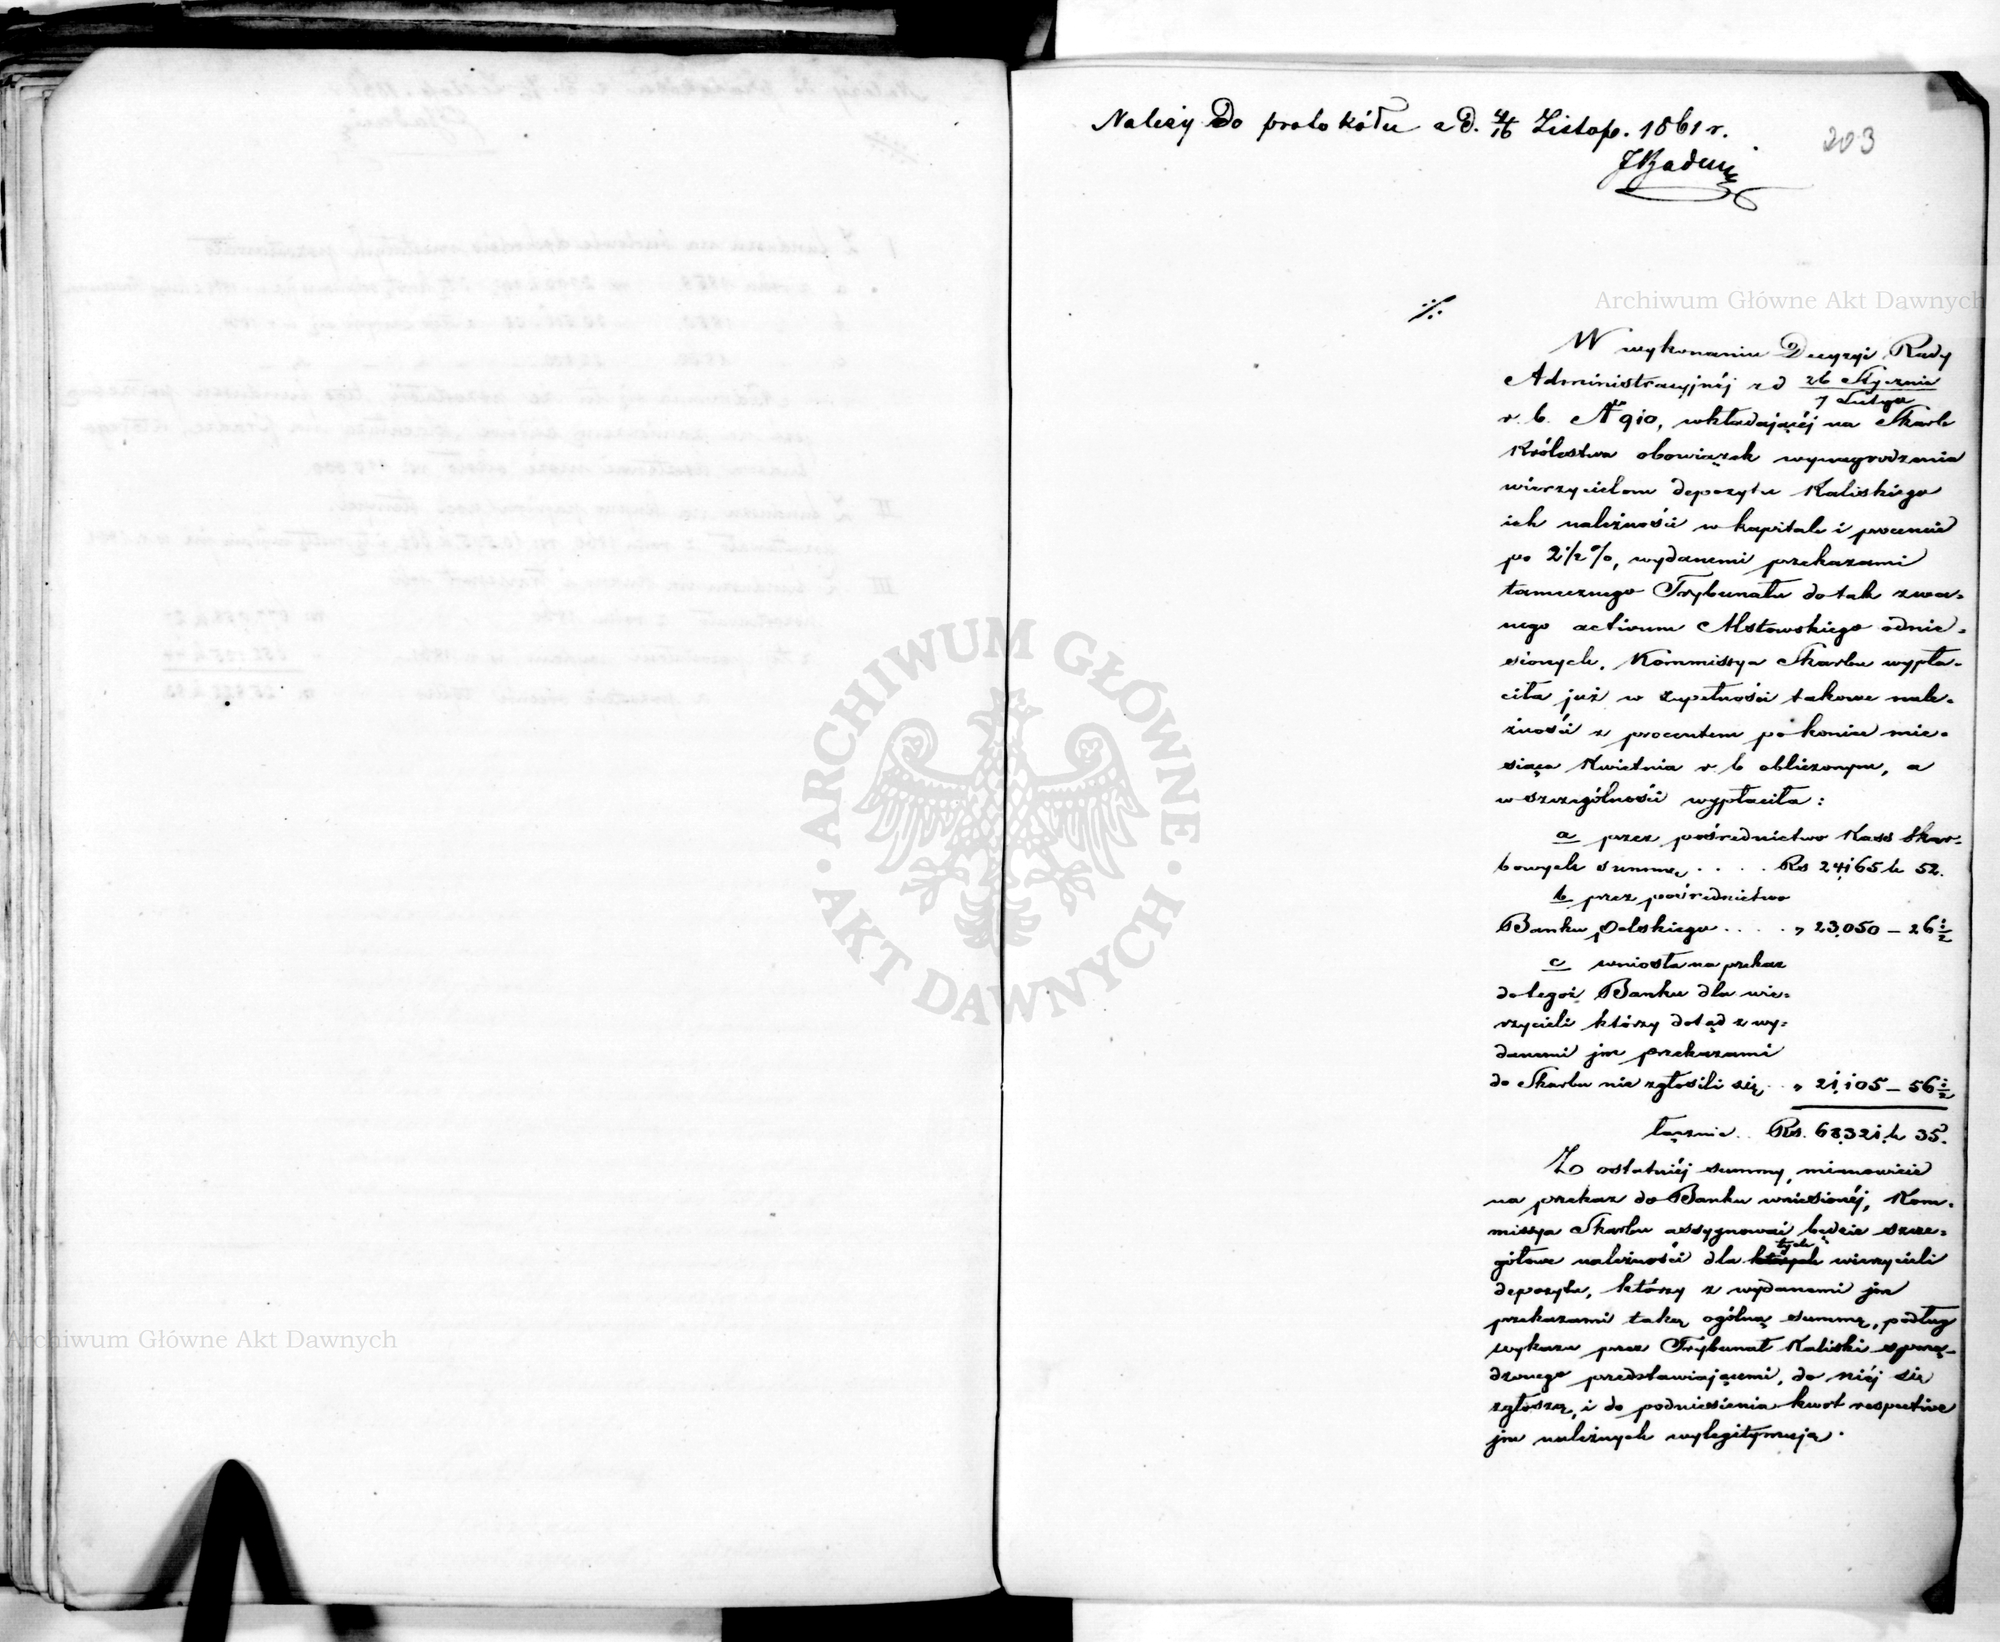 Należy do protokółu z d. 4/16 Listop. 1861 r.
JBadeni
203
W wykonaniu Decyzyi Rady
Administracyjnéj z d 26 Stycznia
7 Lutego
r. b. Nr 910, wkładającéj na Skarb
Królestwa obowiązek wynagrodzenia
wierzycielom depozytu Kaliskiego
ich należności w kapitale i procencie
po 2 1/2 %, wydanemi przekazami
tamecznego Trybunału do tak zwa=
nego activum Mstowskiego odnie=
sionych, Kommissya Skarbu wypła=
ciła już w zupełności takowe nale=
żności z procentem po koniec mie=
siąca Kwietnia r. b obliczonym, a
w szczególności wypłaciła:
a przez pośrednictwo Kass Skar=
bowych summę . . . . Rs 24,165 k 52.
b przez pośrednictwo
Banku Polskiego . . . . „ 23,050 – 26 1/2
c wniosła na przekaz
do tegoż Banku dla wie=
rzycieli którzy dotąd z wy=
danemi jm przekazami
do Skarbu nie zgłosili się . . „ 21,105 – 56 1/2
łącznie . . Rs. 68,321, k 35.
Z ostatniéj summy, mianowicie
na przekaz do Banku wniesionéj, Kom=
missya Skarbu assygnować będzie szcze=
tych
gółowe należności dla których wierzycieli
depozytu, którzy z wydanemi jm
przekazami taką ogólną summę, podług
wykazu przez Trybunał Kaliski sporzą=
dzonego przedstawiającemi, do niéj się
zgłoszą, i do podniesienia kwot respective
jm należnych wylegitymują.
Archiwum Główne Akt Dawnych
Archiwum Główne Akt Dawnych
ARCHIWUM GŁÓWNE
AKT DAWNYCH